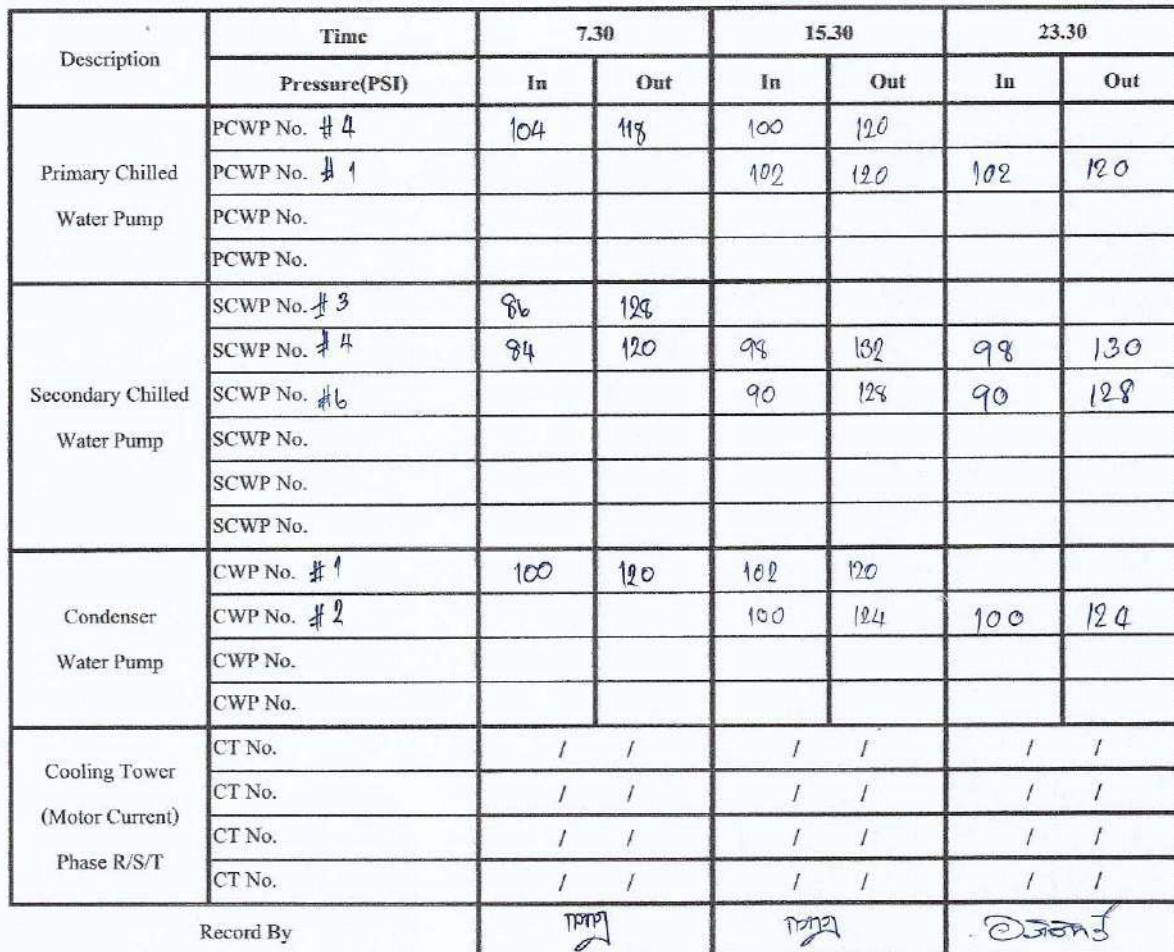 Description Time 7.30 15.30 23.30
Pressure(PSI) In Out In Out In Out
Primary Chilled Water Pump
PCWP No. #4 104 118 100 120
PCWP No. #1 102 120 102 120
PCWP No.
PCWP No.
Secondary Chilled Water Pump
SCWP No. #3 86 128
SCWP No. #4 84 120 98 132 98 130
SCWP No. #6 90 128 90 128
SCWP No.
SCWP No.
SCWP No.
Condenser Water Pump
CWP No. #1 100 120 102 120
CWP No. #2 100 124 100 124
CWP No.
CWP No.
Cooling Tower (Motor Current) Phase R/S/T
CT No. / / / / / /
CT No. / / / / / /
CT No. / / / / / /
CT No. / / / / / /
Record By